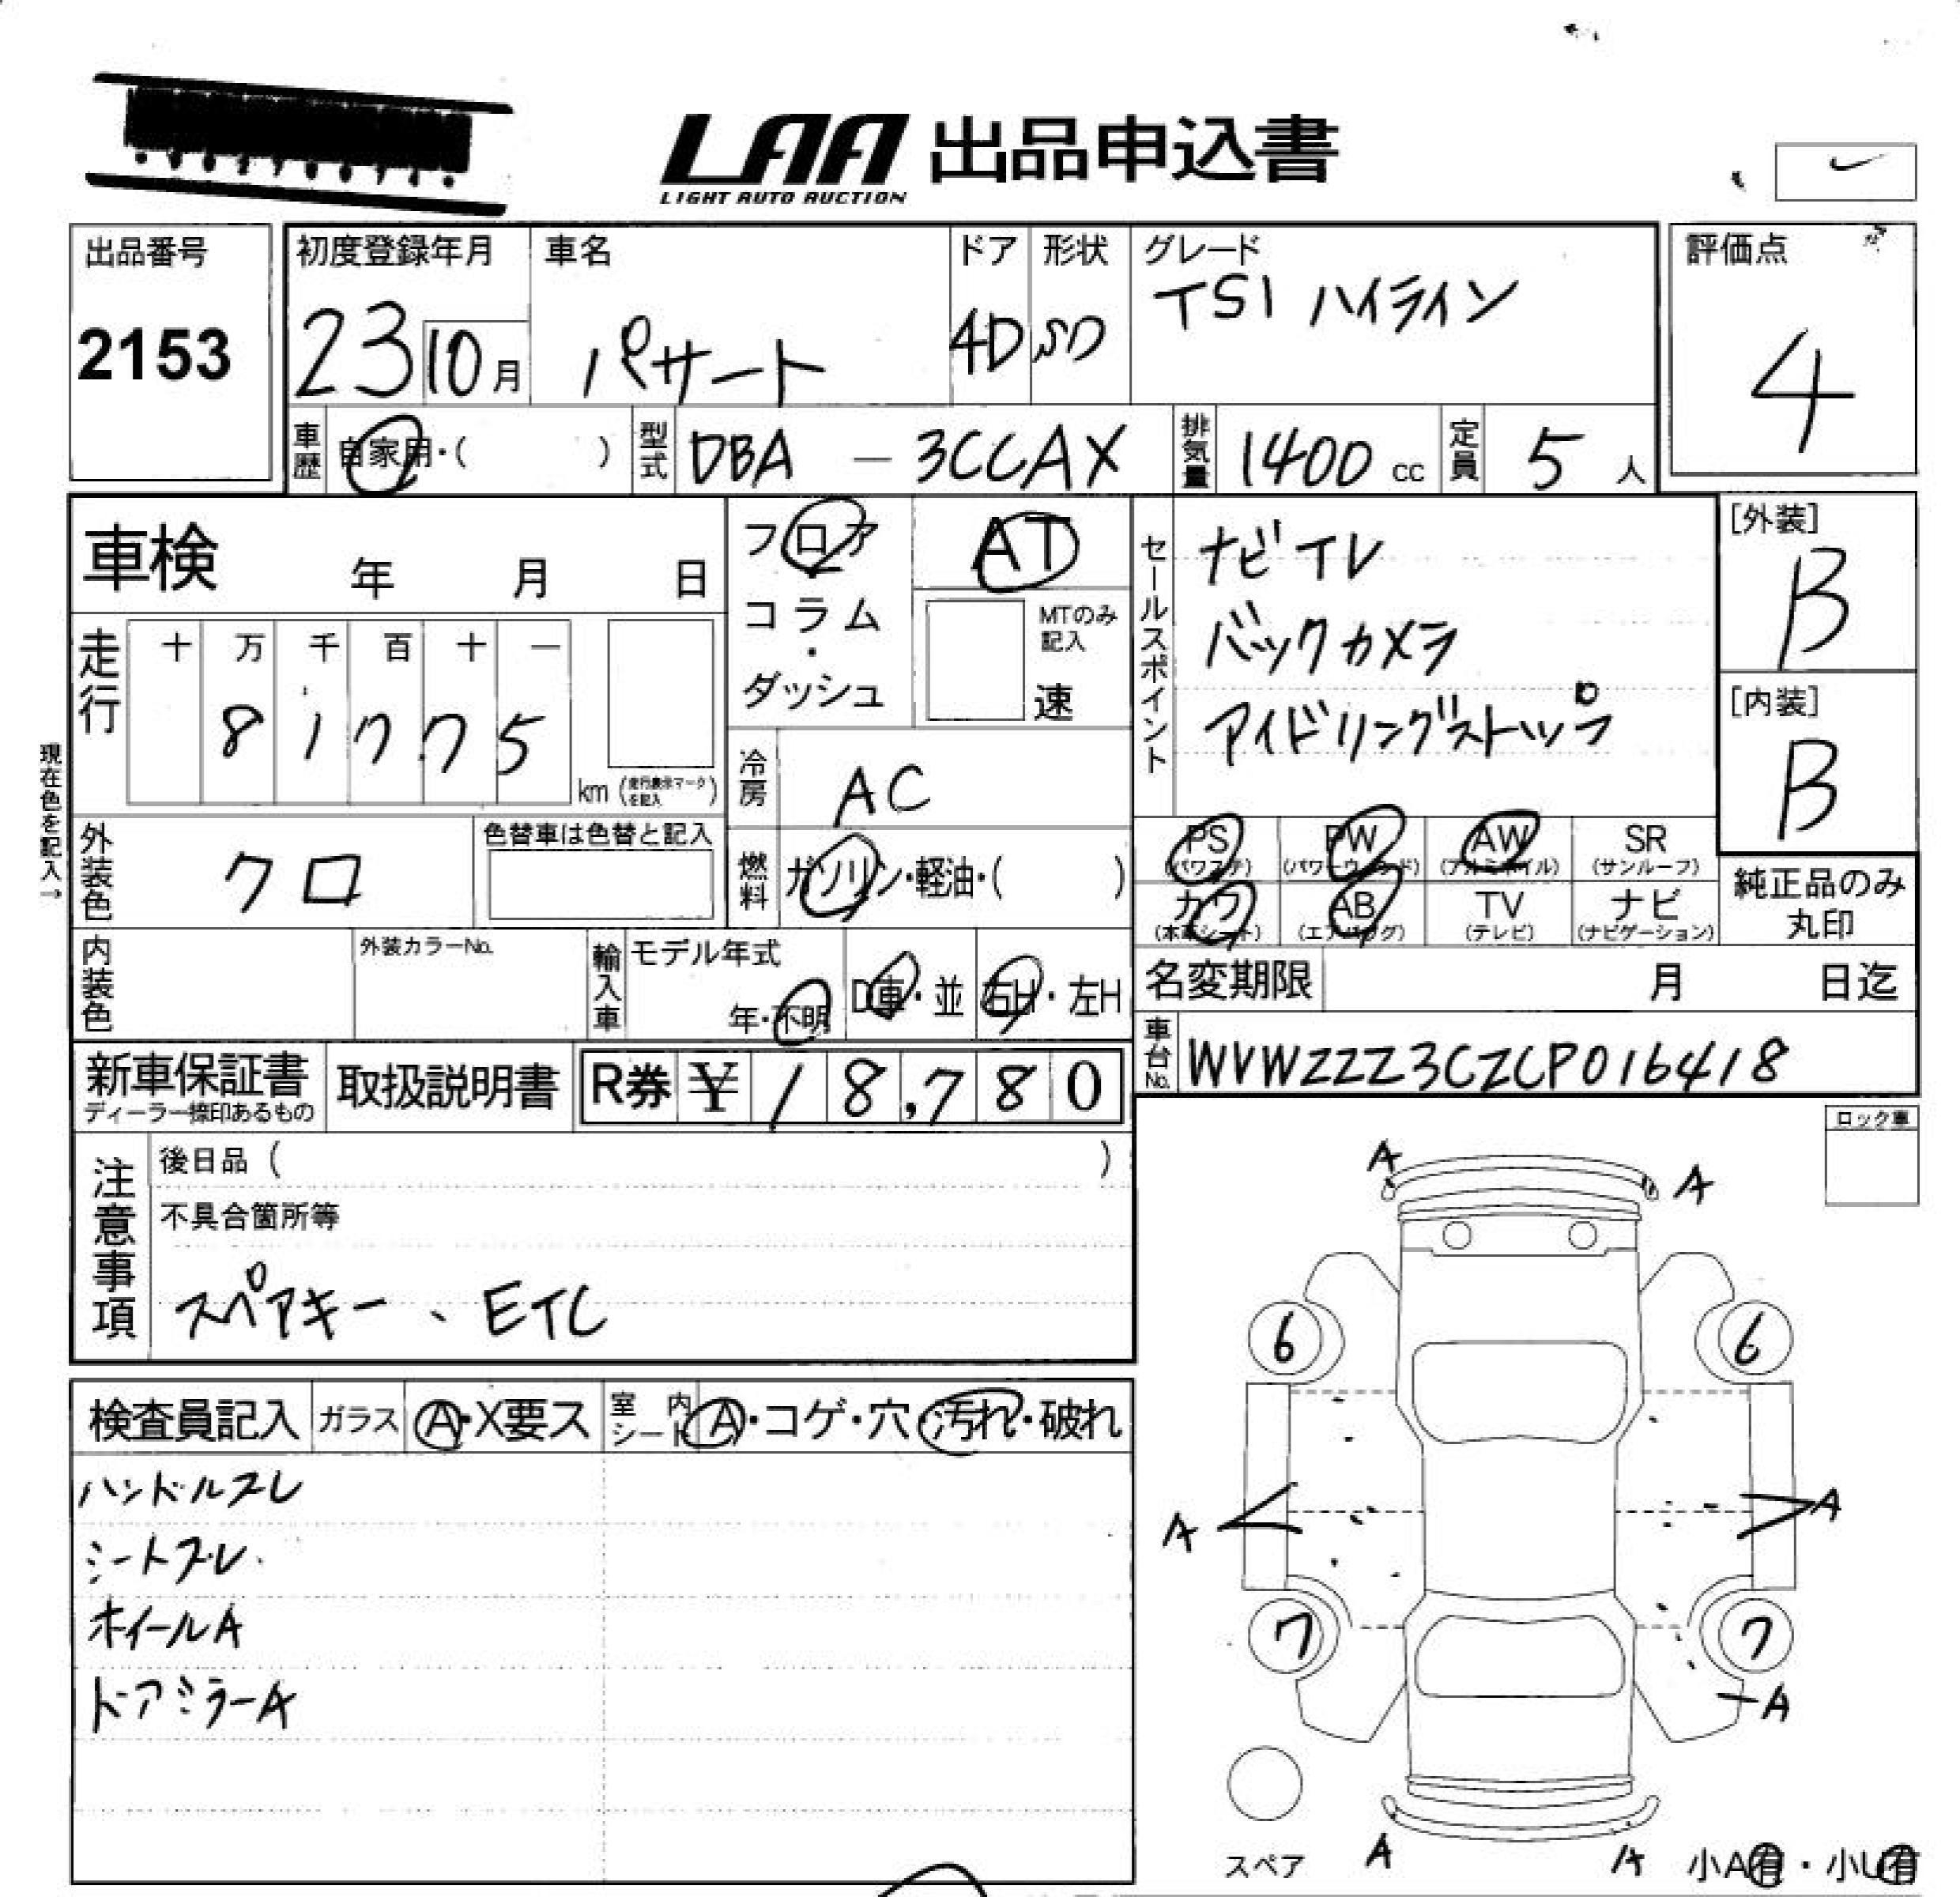 LAA 出品申込書
LIGHT AUTO AUCTION
出品番号
2153
初度登録年月
23 10月
車名
パサート
ドア
4D
形状
SD
グレード
TSI ハイライン
評価点
4
車歴 自家用・( )
型式 DBA - 3CCAX
排気量 1400 cc
定員 5 人
車検 年 月 日
フロア・コラム・ダッシュ
AT
MTのみ記入
速
セールスポイント
ナビ イレ
バックカメラ
アイドリングストップ
[外装]
B
[内装]
B
走行 十 万 千 百 十 一
8 1 7 7 5 km (走行表示マークを記入)
現在色を記入→
冷房 AC
外装色 クロ
色替車は色替と記入
燃料 ガソリン・軽油・( )
PS (パワステ) PW (パワーウィンドウ) AW (アルミホイル) SR (サンルーフ)
カワ (本革シート) AB (エアバッグ) TV (テレビ) ナビ (ナビゲーション)
純正品のみ丸印
内装色
外装カラーNo.
輸入車 モデル年式
年・不明 D車・並 右H・左H
名変期限 月 日迄
車台No. WVWZZZ3CZCP016418
新車保証書
ディーラー捺印あるもの
取扱説明書
R券 ¥ 18,780
ロック車
注意事項
後日品 ( )
不具合箇所等
スペアキー、ETC
検査員記入 ガラス A・X要ス 室内シート A・コゲ・穴・汚れ・破れ
ハンドルスレ
シートスレ
ホイールA
ドアミラーA
A A
6 6
A A
7 7
A
A A
スペア
小A有・小U有